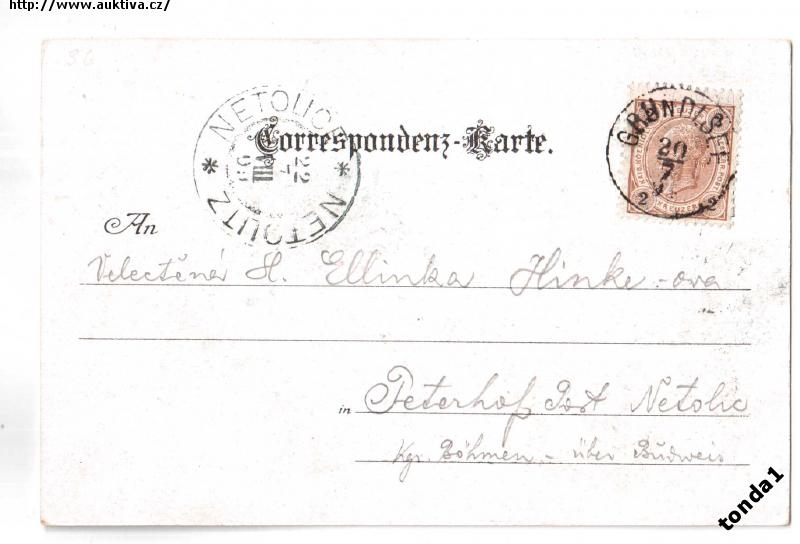 http://www.auktiva.cz/
36
Correspondenz-Karte.
NETOLICE * NETOLITZ *
22
7
VIII
GRUNDLSEE
20
7
An
Velectěná H. Ellinka Hinke-ova
in Peterhof Post Netolic
Kgr. Böhmen - über Budweis
tonda1